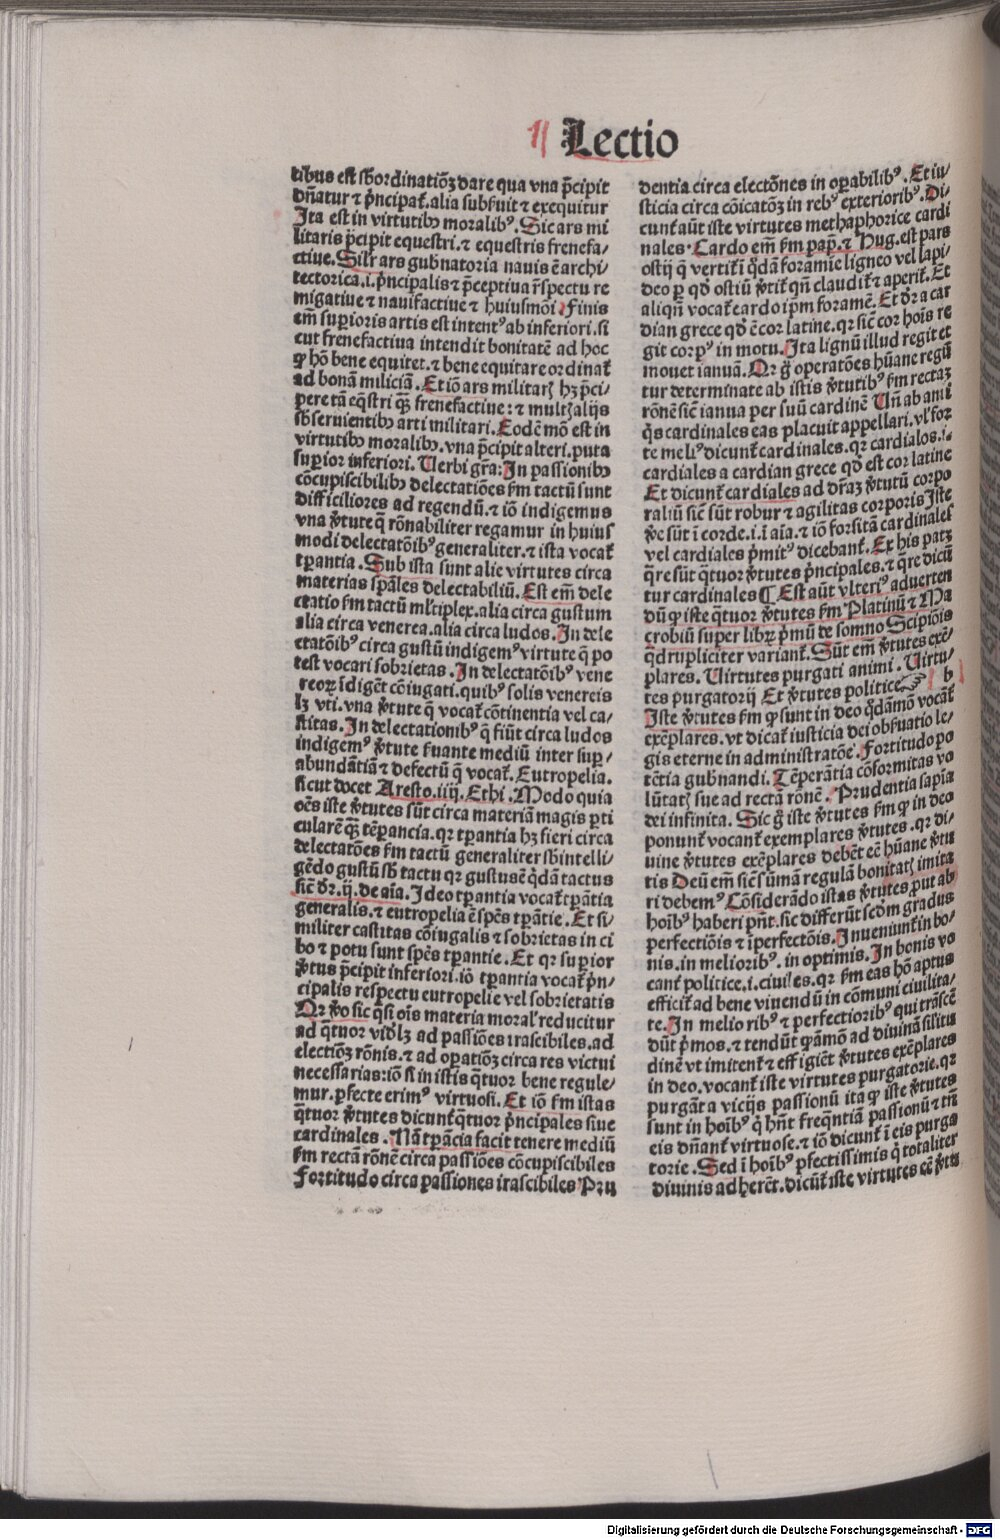 Lectio
tibus est sb̄ordinatiōꝫ dare qua vna p̄cipit
dn̄atur ⁊ pͥncipat̄. alia subſuit ⁊ exequitur
Ita est in virtutibꝰ moralibꝰ. Sic ars mi
litaris p̄cipit equestri. ⁊ equestris frenefa/
ctiue. Silr̄ ars gub̄natoria nauis ē archi/
tectorica .i. pͥncipalis ⁊ p̄ceptiua r̄spectu re
migatiue ⁊ nauifactiue ⁊ huiusmōi Finis
em̄ suꝑioris artis est intentꝰ ab inferiori. si
cut frenefactiua intendit bonitatē ad hoc
ꝙ hō bene equitet. ⁊ bene equitare ordinat̄
ad bonā miliciā. Et iō ars militarꝭ hꝫ p̄ci/
pere tā eq̄stri qꝫ frenefactiue: ⁊ multꝭ alijs
sb̄seruientibꝰ arti militari. Eodē mō est in
virtutibꝰ moralibꝰ. vna p̄cipit alteri. puta
suꝑior inferiori. Uerbi gr̄a: In passionibꝰ
cōcupiscibilibꝰ delectatiōes ẜm tactū sunt
difficiliores ad regendū. ⁊ iō indigemus
vna v̓tute q̄ rōnabiliter regamur in huius
modi delectatōibꝰ generaliter. ⁊ ista vocat̄
tꝑantia. Sub ista sunt alie virtutes circa
materias spāles delectabiliū. Est em̄ dele
ctatio ẜm tactū mĺtiplex. alia circa gustum
alia circa venerea. alia circa ludos. In dele
ctatōibꝰ circa gustū indigemꝰ virtute q̄ po
test vocari sobrietas. In delectatōibꝰ vene
reoꝝ īdigēt cōiugati. quibꝰ solis venereis
lꝫ vti. vna v̓tute q̄ vocat̄ cōtinentia vel ca/
stitas. In delectationibꝰ q̄ fiūt circa ludos
indigemꝰ v̓tute ẜuante mediū inter suꝑ/
abundātiā ⁊ defectū q̄ vocat̄. Eutropelia.
sicut docet Aresto. iiij. Ethi. Modo quia
oēs iste v̓tutes sūt circa materiā magis ꝑti
cularē qꝫ tēꝑancia. qꝛ tꝑantia hꝫ fieri circa
delectatōes ẜm tactū generaliter sb̄intelli/
gēdo gustū sb̄ tactu qꝛ gustus ē qͥdā tactus
sic̄ dr̄ .ij. de aīa. Ideo tꝑantia vocat̄ tꝑātia
generalis. ⁊ eutropelia ē spēs tꝑātie. Et si/
militer castitas cōiugalis ⁊ sobrietas in ci
bo ⁊ potu sunt spēs tꝑantie. Et qꝛ suꝑior
v̓tus p̄cipit inferiori. iō tꝑantia vocat̄ pͥn/
cipalis respectu eutropelie vel sobrietatis
Qꝛ v̓o sic qͣsi oīs materia moral̓ reducitur
ad qͣtuor vidꝫ ad passiōes irascibiles. ad
electiōꝫ rōnis. ⁊ ad oꝑatiōꝫ circa res victui
necessarias: iō si in istis qͣtuor bene regule/
mur. ꝑfecte erimꝰ virtuosi. Et iō ẜm istas
qͣtuor v̓tutes dicunt̄ qͣtuor pͥncipales siue
cardinales. Nā tꝑācia facit tenere mediū
ẜm rectā rōnē circa passiōes cōcupiscibiles
Fortitudo circa passiones irascibiles Pru
dentia circa electōnes in oꝑabilibꝰ. Et iu/
sticia circa cōicatōꝫ in rebꝰ exterioribꝰ. Di
cunt̄ aūt iste virtutes methaphorice cardi
nales. Cardo em̄ ẜm pap̄. ⁊ Hug. est pars
ostij q̄ vertit̄ ī qͦdā foramīe ligneo vel lapi/
deo ꝑ qd̄ ostiū v̓tit̄ qn̄ claudit̄ ⁊ aperit̄. Et
aliqn̄ vocat̄ cardo ip̄m foramē. Et dr̄ a car
dian grece qd̄ ē cor latine. qꝛ sic̄ cor hoīs re
git corpꝰ in motu. Ita lignū illud regit et
mouet ianuā. Qꝛ gͦ operatōes hūane regū
tur determinate ab istis v̓tutibꝰ ẜm rectaꝫ
rōnē sic̄ ianua per suū cardinē Un̄ ab anti
qͥs cardinales eas placuit appellari. vl̓ for
te meliꝰ dicunt̄ cardinales. qꝛ cardialos .i.
cardiales a cardian grece qd̄ est cor latine
Et dicunt̄ cardiales ad dr̄aꝫ v̓tutū corpo
raliū sic̄ sūt robur ⁊ agilitas corporis Iste
v̓o sūt ī corde .i. ī aīa. ⁊ iō forsitā cardinales
vel cardiales pͥmitꝰ dicebant̄. Ex his patꝫ
q̄re sūt qͣtuor v̓tutes pͥncipales. ⁊ q̄re dicū
tur cardinales ¶ Est aūt vlteriꝰ aduerten
dū ꝙ iste qͣtuor v̓tutes ẜm Platinū ⁊ Ma
crobiū super libꝝ pͥmū de somno Scipiōis
qͣdrupliciter variant̄. Sūt em̄ v̓tutes exē/
plares. Uirtutes purgati animi. Uirtu/
tes purgatorij Et v̓tutes politice b
Iste v̓tutes ẜm ꝙ sunt in deo qͦdāmō vocāt̄
exēplares. vt dicat̄ iusticia dei obẜuatio le/
gis eterne in administratōe. Fortitudo po
tētia gub̄nandi. Tēperātia cōformitas vo
lūtatꝭ sue ad rectā rōnē. Prudentia sapīa
dei infinita. Sic gͦ iste v̓tutes ẜm ꝙ in deo
ponunt̄ vocant̄ exemplares v̓tutes. qꝛ di/
uine v̓tutes exēplares debēt eē hūane v̓tu
tis Deū em̄ sic̄ sūmā regulā bonitatꝭ imita
ri debemꝰ Cōsiderādo istas v̓tutes ꝓut ab
hoībꝰ haberi pn̄t. sic differūt scdm̄ gradus
perfectiōis ⁊ īperfectōis. Inueniunt̄ in bo/
nis. in melioribꝰ. in optimis. In bonis vo
cant̄ politice .i. ciuiles. qꝛ ẜm eas hō aptus
efficit̄ ad bene viuendū in cōmuni ciuilita/
te. In melioribꝰ ⁊ perfectioribꝰ qui trāscē
dūt pͥmos. ⁊ tendūt qͦdāmō ad diuinā silitu
dinē vt imitent̄ ⁊ effigiēt v̓tutes exēplares
in deo. vocant̄ iste virtutes purgatorie. qꝛ
purgāt a vicijs passionū ita ꝙ iste v̓tutes
sunt in hoībꝰ qͥ hn̄t freqn̄tiā passionū ⁊ tn̄
eis dn̄ant̄ virtuose. ⁊ iō dicunt̄ ī eis purga
torie. Sed ī hoībꝰ ꝑfectissimis qͥ totaliter
diuinis adherēt. dicūt̄ iste virtutes eē v̓tu
Digitalisierung gefördert durch die Deutsche Forschungsgemeinschaft - DFG